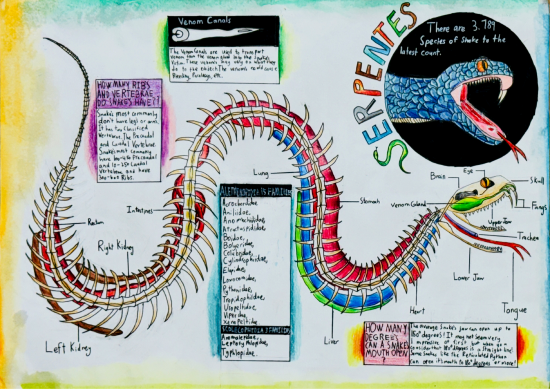 Venom Canals
The Venom Canals are used to transport
venom from the venom gland into the Snake's
to the victim. The venoms could cause
Bleeding, Paralasy, etc.
SERPENTES
There are 3,789
Species of Snake to the
latest count.
HOW MANY RIBS
AND VERTEBRAE
DO SNAKES HAVE?
Snakes most commonly
don't have legs or arms.
It has two classified
Vertebrae. The Precaudal
and Caudal Vertebrae.
Snakes most commonly
Vertebrae and have
Ribs.
Lung
Eye
Brain
Skull
Fangs
Venom Gland
Upper Jaw
Trachea
Lower Jaw
Tongue
Stomach
Intestines
Rectum
Right Kidney
Left Kidney
Liver
Heart
ALETHINOPHIDIA FAMILIES
Acrochordidae,
Aniliidae,
Anomochilidae,
Atractaspididae,
Boidae,
Bolyeridae,
Colubridae,
Cylindrophiidae,
Elapidae,
Loxocemidae,
Pythonidae,
Tropidophiidae,
Uropeltidae,
Viperidae,
Xenopeltidae
SCOLECOPHIDIA FAMILIES
Anomalepidae,
Typhlopidae.
HOW MANY
DEGREES
CAN A SNAKE
MOUTH OPEN?
The average Snake's jaw can open up to
150° degrees! It may not seem very
impressive at first, but when you
consider that 180° degrees is a straight line!
Some Snakes like the Reticulated Python
can open it's mouth to 180° degrees or more!